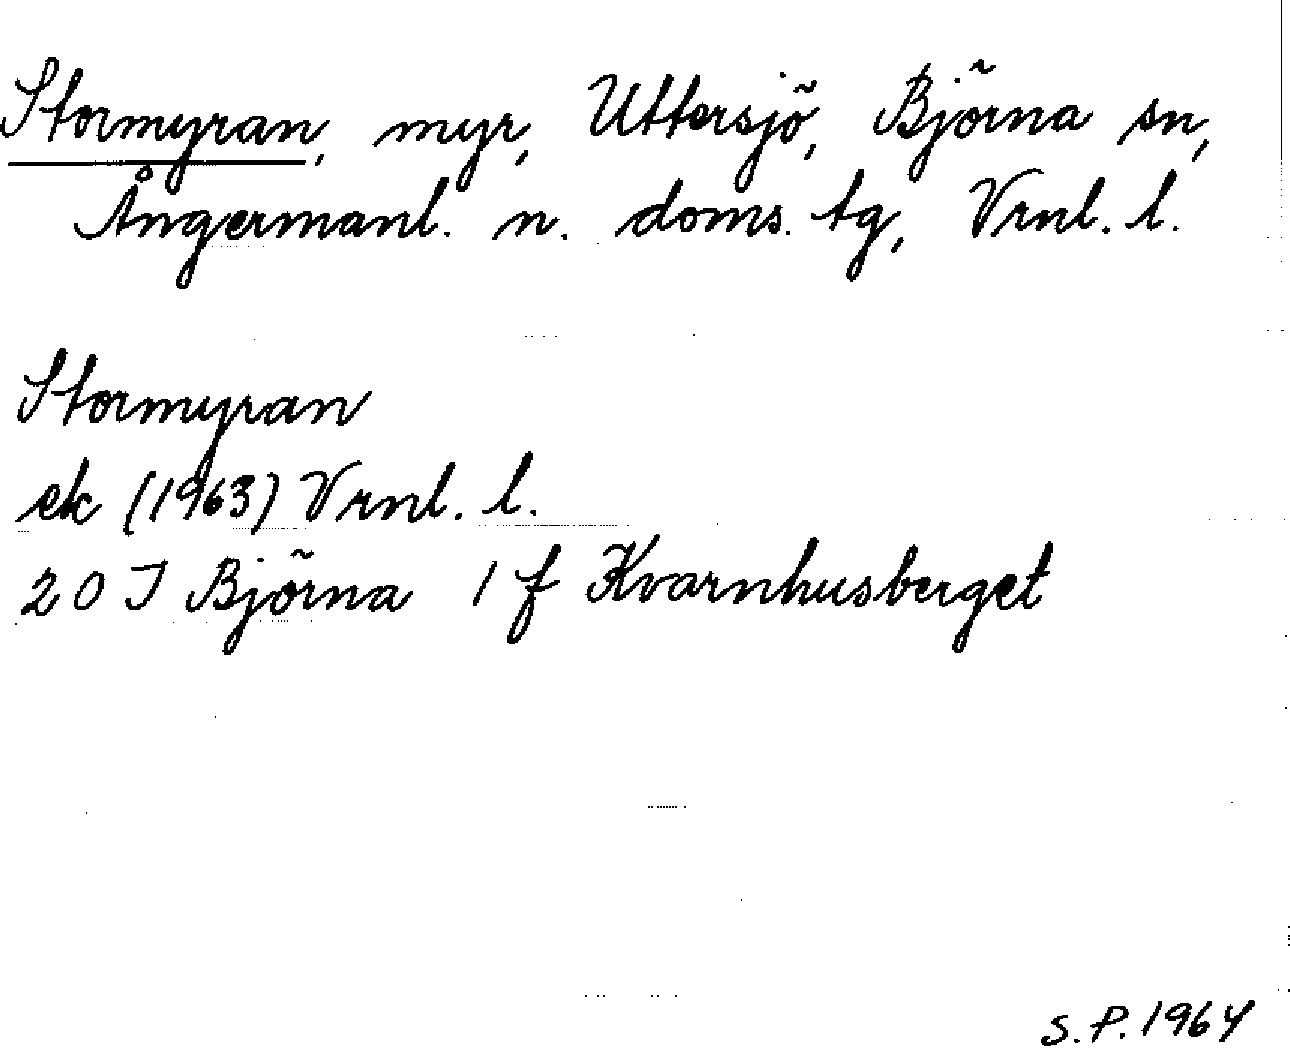 Stormyran, myr, Uttersjö, Björna sn,
Ångermanl. n. doms. tg, Vrnl. l.
Stormyran
ek (1963) Vrnl. l.
20 J Björna 1 f Kvarnhusberget
S.P. 1964